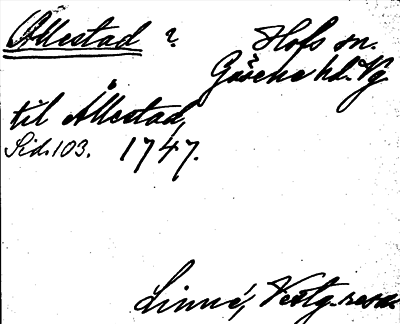 Ållestad ? Hofs sn.
Gäsene hd. Vg
til Ållestad,
Sid. 103. 1747.
Linné, Vestg. resa